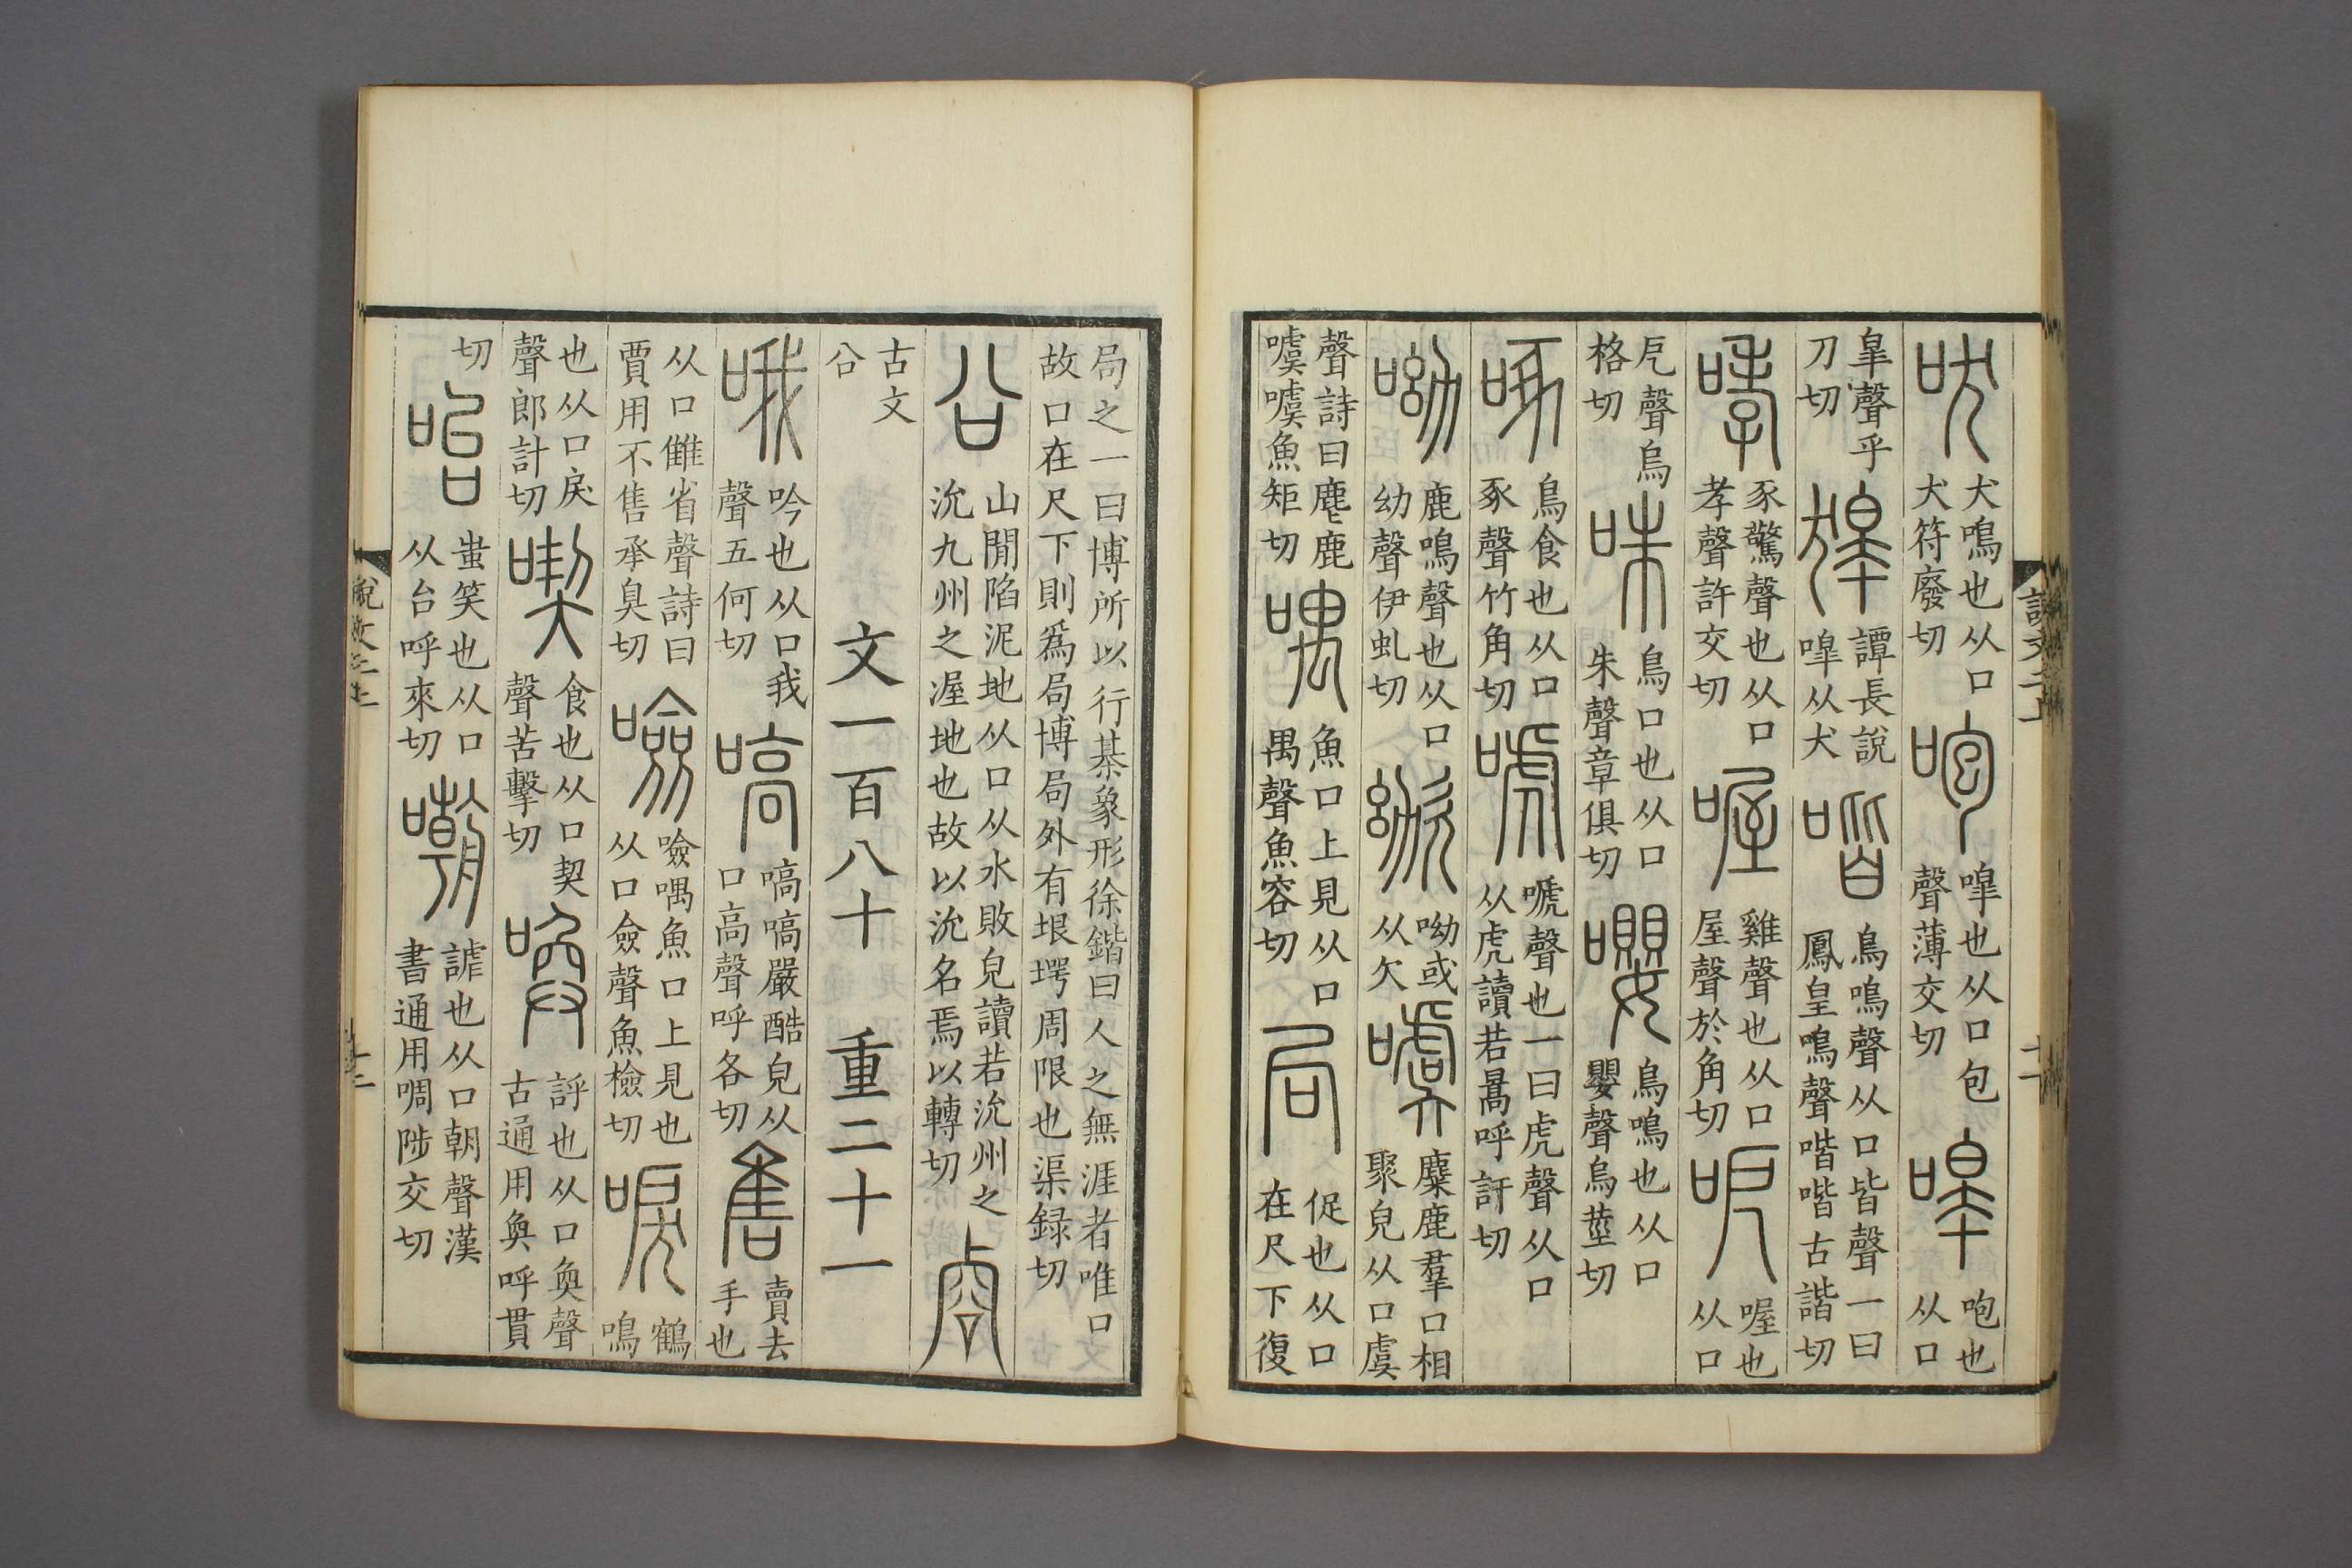 吠犬鳴也从口犬符廢切咆嘷也从口包聲薄交切嘷咆也从口
皐聲乎刀切獋譚長說嘷从犬喈鳥鳴聲从口皆聲一曰鳳皇鳴聲喈喈古諧切
哮豕驚聲也从口孝聲許交切喔雞聲也从口屋聲於角切呝喔也从口
戹聲烏格切咮鳥口也从口朱聲章俱切嚶鳥鳴也从口嬰聲烏莖切
啄鳥食也从口豖聲竹角切唬嗁聲也一曰虎聲从口从虎讀若暠呼訏切
呦鹿鳴聲也从口幼聲伊虬切㕭呦或从欠噳麋鹿羣口相聚皃从口虞
聲詩曰麀鹿噳噳魚矩切喁魚口上見从口禺聲魚容切局促也从口在尺下復
局之一曰博所以行棊象形徐鍇曰人之無涯者唯口故口在尺下則爲局博局外有垠堮周限也渠録切
㕣山閒陷泥地从口从水敗皃讀若沇州之沇九州之渥地也故以沇名焉以轉切𠔌
古文㕣
文一百八十 重二十一
哦吟也从口我聲五何切嗃嗃嗃嚴酷皃从口高聲呼各切售賣去手也
从口雔省聲詩曰賈用不售承臭切噞噞喁魚口上見也从口僉聲魚檢切唳鶴鳴
也从口戾聲郎計切喫食也从口契聲苦擊切喚評也从口奐聲古通用奐呼貫
切咍蚩笑也从口从台呼來切嘲謔也从口朝聲漢書通用啁陟交切
說文二上
十二